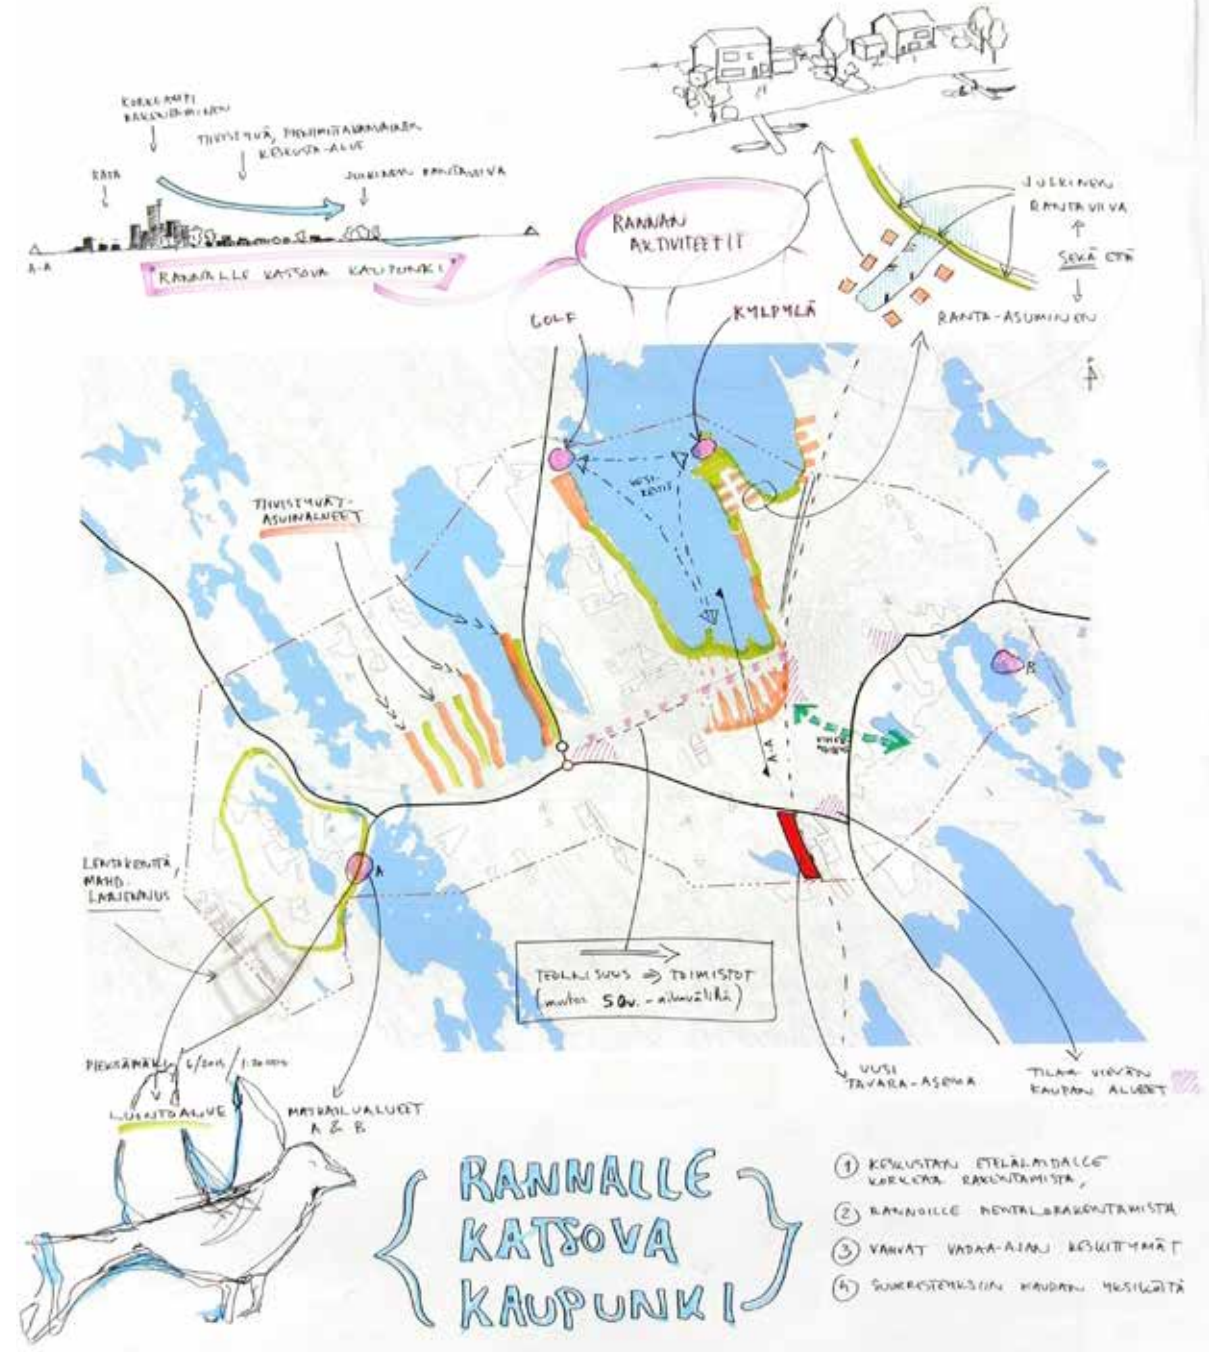 KORKEAMPI
RAKENTAMINEN
TIIVISTYVÄ, PIENIMITTAKAAVAINEN
KESKUSTA-ALUE
RATA
JULKINEN RANTAVIIVA
A-A
RANNALLE KATSOVA KAUPUNKI
RANNAN
AKTIVITEETIT
JULKINEN
RANTAVIIVA
SEKÄ ETÄ
RANTA-ASUMINEN
GOLF
KYLPYLÄ
VESI-
REITIT
TIIVISTYVÄT
ASUINALUEET
B
A-A
A
LENTOKENTTÄ,
MAHD.
LAAJENNUS
TEOLLISUUS ⇒ TOIMISTOT
(muutos 50v. - aikavälillä)
PIEKSÄMÄKI / 6/2015 / 1:20 000
LUONTOALUE
MATKAILUALUEET
A & B
UUSI
TAVARA-ASEMA
TILAA VIEVÄN
KAUPAN ALUEET
RANNALLE
KATSOVA
KAUPUNKI
1 KESKUSTAN ETELÄLAIDALLE
KORKEAA RAKENTAMISTA,
2 RANNOILLE MATALARAKENTAMISTA
3 VAHVAT VAPAA-AJAN KESKITTYMÄT
4 SUURRISTEYKSIIN KAUPAN YKSIKÖITÄ